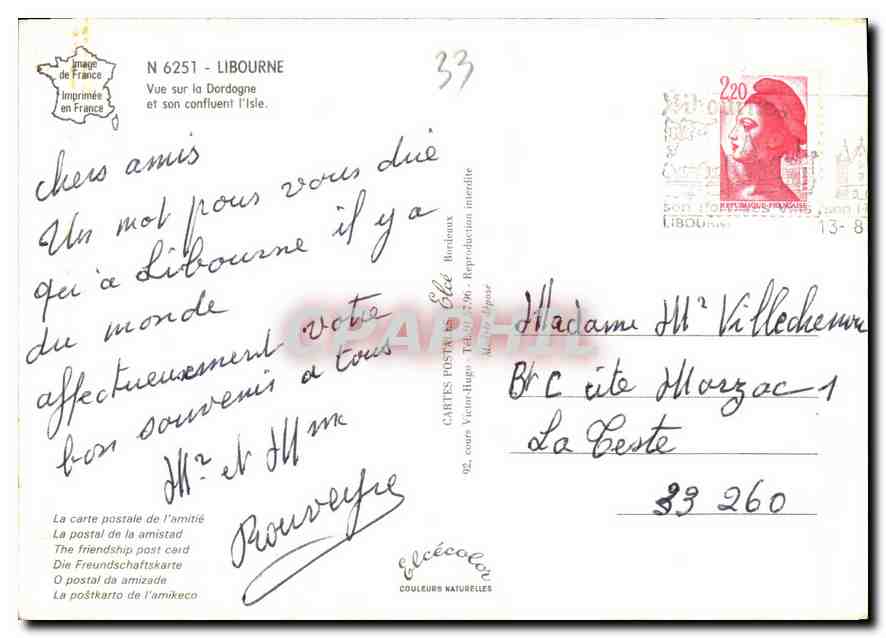 Image
de France
Imprimée
en France
N 6251 - LIBOURNE
Vue sur la Dordogne
et son confluent l'Isle.
33
2,20
REPUBLIQUE FRANÇAISE
LIBOURNE
13-8
chers amis
Un mot pour vous dire
qu'a Libourne il y a
du monde
affectueusement votre
bon souvenir a tous
Mr et Mme
Rouveyre
CARTES POSTALES Elcé Bordeaux
92, cours Victor-Hugo - Tél. - Reproduction interdite
Modèle déposé
CPAPHIL
Madame Mr Villechenou
Bt C cite Marzac 1
La Teste
33 260
La carte postale de l'amitié
La postal de la amistad
The friendship post card
Die Freundschaftskarte
O postal da amizade
La poŝtkarto de l'amikeco
Elcécolor
COULEURS NATURELLES